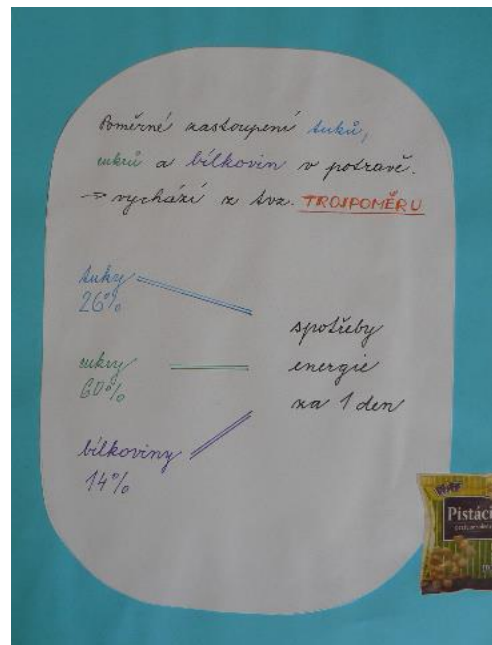 Poměrné zastoupení tuků,
cukrů a bílkovin v potravě.
⇒ vychází z tvz. TROJPOMĚRU
tuky
26%
cukry
60%
bílkoviny
14%
spotřeby
energie
za 1 den
Pistáci